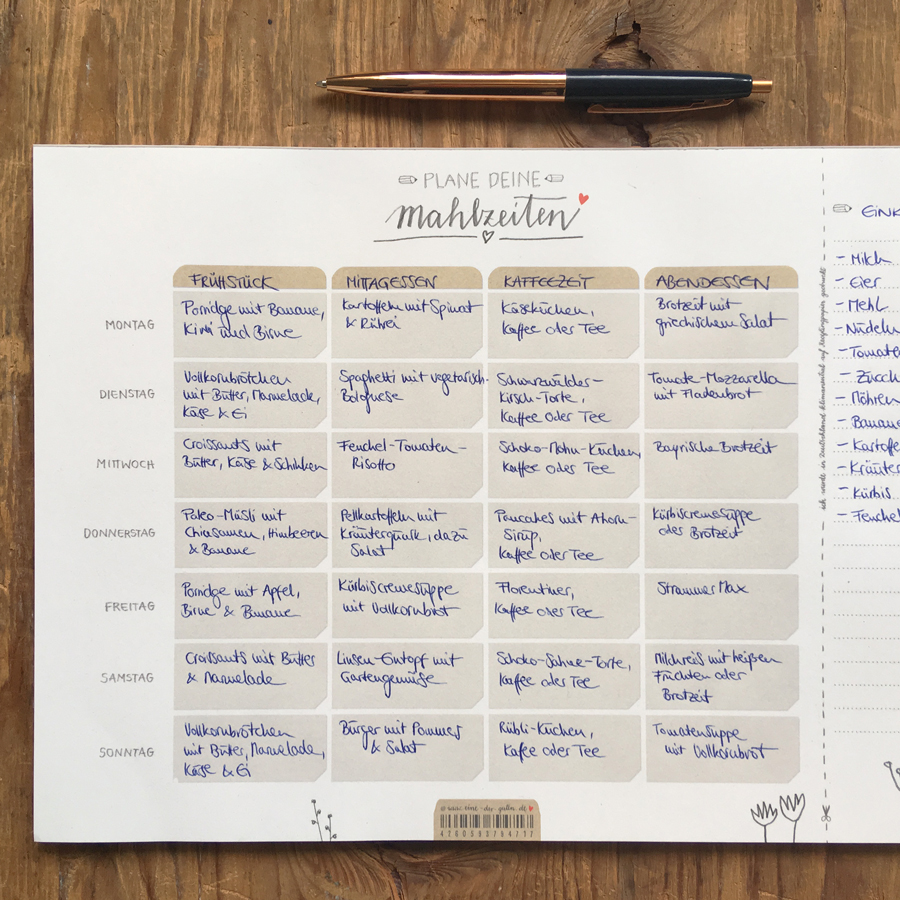 PLANE DEINE
mahlzeiten
FRÜHSTÜCK MITTAGESSEN KAFFEEZEIT ABENDESSEN
MONTAG
Porridge mit Banane,
Kiwi und Birne
Kartoffeln mit Spinat
& Rührei
Käsekuchen,
Kaffee oder Tee
Brotzeit mit
griechischem Salat
DIENSTAG
Vollkornbrötchen
mit Butter, Marmelade,
Käse & Ei
Spaghetti mit vegetarisch.
Bolognese
Schwarzwälder-
Kirsch-Torte,
Kaffee oder Tee
Tomate-Mozzarella
mit Fladenbrot
MITTWOCH
Croissants mit
Butter, Käse & Schinken
Fenchel-Tomaten-
Risotto
Schoko-Mohn-Kuchen,
Kaffee oder Tee
Bayrische Brotzeit
DONNERSTAG
Paleo-Müsli mit
Chiasamen, Himbeeren
& Banane
Pellkartoffeln mit
Kräuterquark, dazu
Salat
Pancakes mit Ahorn-
Sirup,
Kaffee oder Tee
Kürbiscremesuppe
oder Brotzeit
FREITAG
Porridge mit Apfel,
Birne & Banane
Kürbiscremesuppe
mit Vollkornbrot
Florentiner,
Kaffee oder Tee
Strammer Max
SAMSTAG
Croissants mit Butter
& Marmelade
Linsen-Eintopf mit
Gartengemüse
Schoko-Sahne-Torte,
Kaffee oder Tee
Milchreis mit heißen
Früchten oder
Brotzeit
SONNTAG
Vollkornbrötchen
mit Butter, Marmelade,
Käse & Ei
Burger mit Pommes
& Salat
Rübli-Kuchen,
Kafee oder Tee
Tomatensuppe
mit Vollkornbrot
ich wurde in Deutschland klimaneutral auf Recyclingpapier gedruckt
EINK
- Milch
- Eier
- Mehl
- Nudeln
- Tomate
- Zucch
- Möhren
- Banane
- Kartoffe
- Kräuter
- Kürbis
- Fenchel
4260593794717